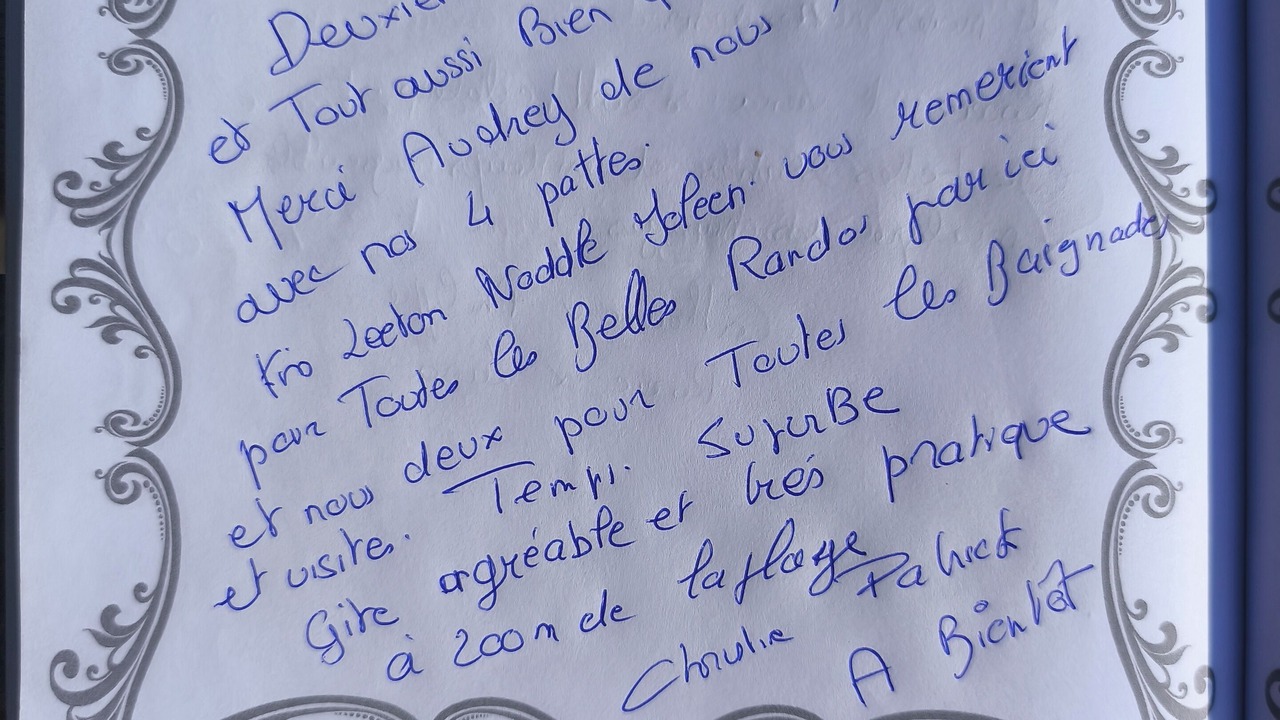 et Tout aussi Bien
Merci Audrey de nous
avec nos 4 pattes.
trio Leeton Noddle vous remerient
pour Toutes les Belles Randos par ici
et nous deux pour Toutes les Baignades
et visites. Temps. SuperBe
Gite agréable et très pratique
à 200m de la plage
Patrick
A Bientôt